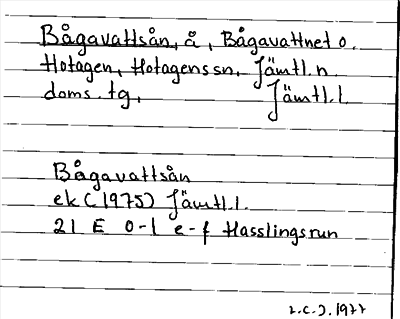 Bågavattsån, å, Bågavattnet o.
Hotagen, Hotagens sn, Jämtl. n.
doms. tg, Jämtl. l.
Bågavattsån
ek (1975) Jämtl. l.
21 E 0-1 e-f Hasslingsrun
1977